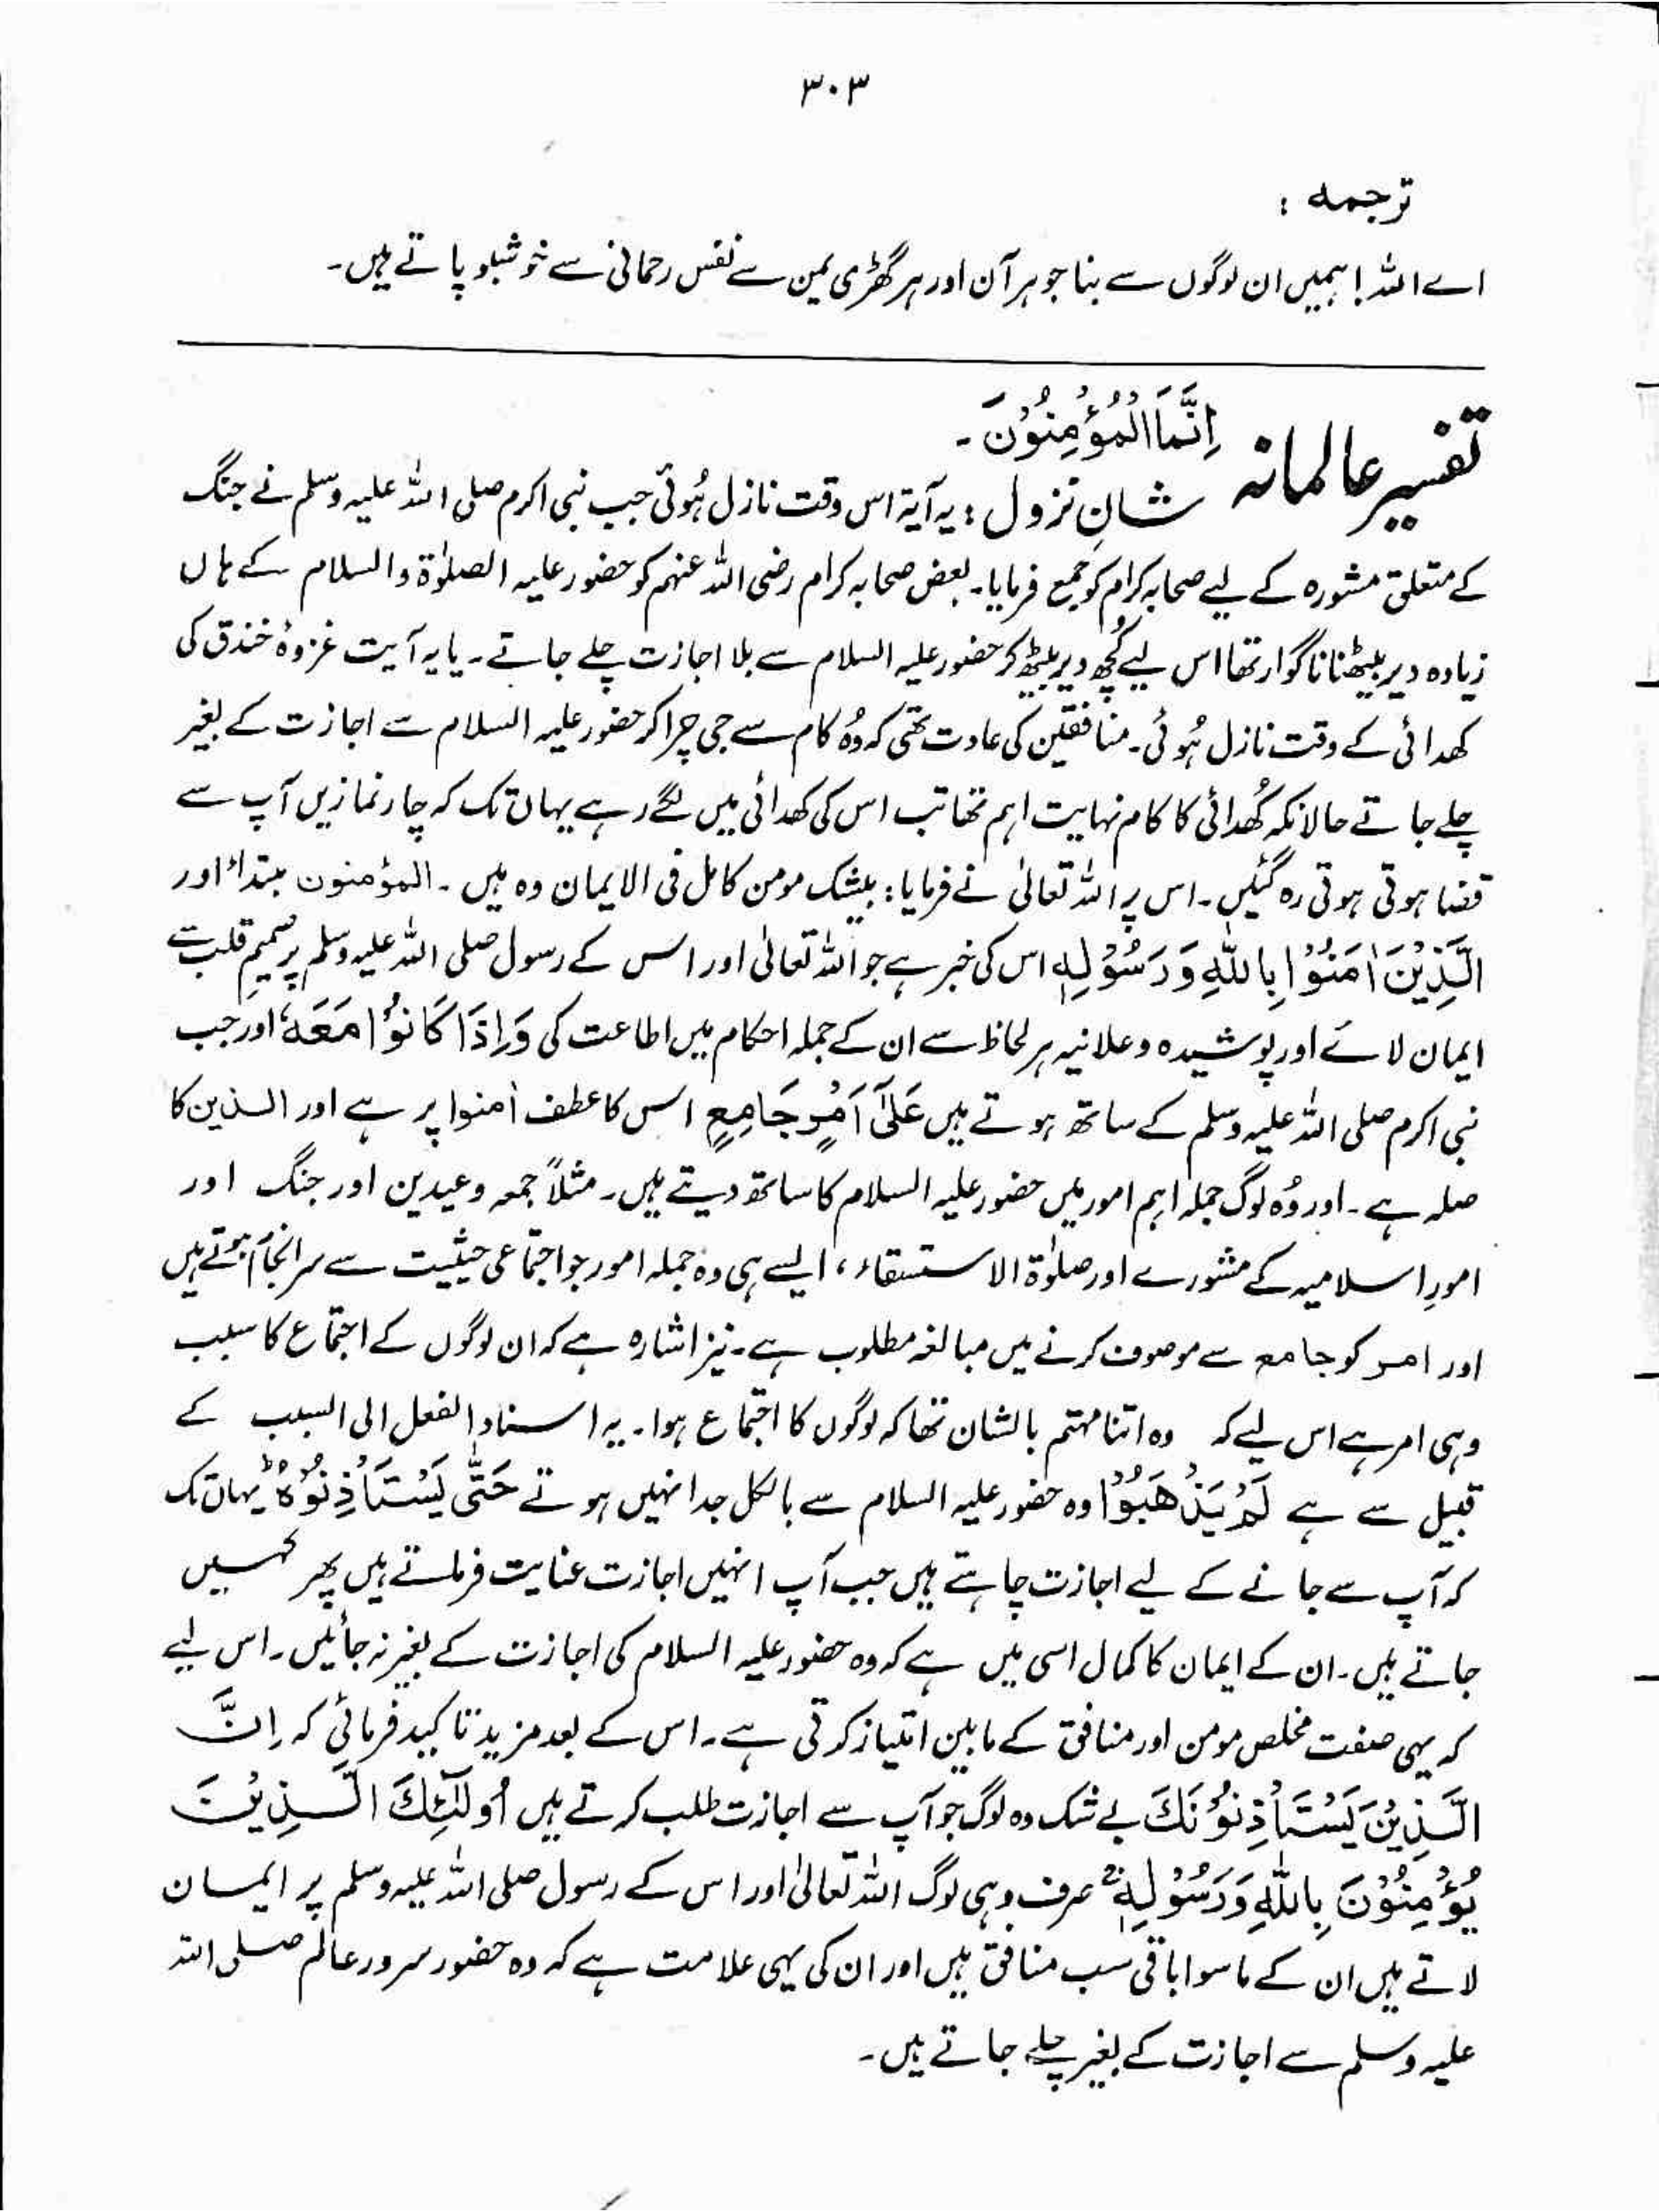 ۳۰۳
ترجمہ :
اے اللہ! ہمیں ان لوگوں سے بنا جو ہر آن اور ہر گھڑی یمن سے نفس رحمانی سے خوشبو پاتے ہیں۔
تفسیر عالمانہ اِنَّمَا الْمُؤْمِنُوْنَ ۔
شانِ نزول : یہ آیۃ اس وقت نازل ہُوئی جب نبی اکرم صلی اللہ علیہ وسلم نے جنگ
کے متعلق مشورہ کے لیے صحابہ کرام کو جمع فرمایا۔ بعض صحابہ کرام رضی اللہ عنہم کو حضور علیہ الصلوٰۃ والسلام کے ہاں
زیادہ دیر بیٹھنا ناگوار تھا اس لیے کُچھ دیر بیٹھ کر حضور علیہ السلام سے بلا اجازت چلے جاتے۔ یا یہ آیت غزوۂ خندق کی
کھدائی کے وقت نازل ہُوئی۔ منافقین کی عادت تھی کہ وُہ کام سے جی چرا کر حضور علیہ السلام سے اجازت کے بغیر
چلے جاتے حالانکہ کُھدائی کا کام نہایت اہم تھا تب اس کی کھدائی میں لگے رہے یہاں تک کہ چار نمازیں آپ سے
قضا ہوتی ہوتی رہ گئیں۔ اس پر اللہ تعالیٰ نے فرمایا : بیشک مومن کامل فی الایمان وہ ہیں ۔ المؤمنون مبتداء اور
الَّذِیْنَ اٰمَنُوْا بِاللّٰهِ وَ رَسُوْلِهٖ اس کی خبر ہے جو اللہ تعالیٰ اور اس کے رسول صلی اللہ علیہ وسلم پر صمیمِ قلب سے
ایمان لائے اور پوشیدہ و علانیہ ہر لحاظ سے ان کے جملہ احکام میں اطاعت کی وَ اِذَا كَانُوْا مَعَهٗ اور جب
نبی اکرم صلی اللہ علیہ وسلم کے ساتھ ہوتے ہیں عَلٰۤى اَمْرٍ جَامِعٍ اس کا عطف اٰمنوا پر ہے اور الذین کا
صلہ ہے ۔ اور وُہ لوگ جملہ اہم امور میں حضور علیہ السلام کا ساتھ دیتے ہیں۔ مثلاً جمعہ و عیدین اور جنگ اور
امورِ اسلامیہ کے مشورے اور صلوٰۃ الاستسقاء، ایسے ہی وہ جملہ امور جو اجتماعی حیثیت سے سرانجام ہوتے ہیں
اور امر کو جامع سے موصوف کرنے میں مبالغہ مطلوب ہے۔ نیز اشارہ ہے کہ ان لوگوں کے اجتماع کا سبب
وہی امر ہے اس لیے کہ وہ اتنا مہتم بالشان تھا کہ لوگوں کا اجتماع ہوا۔ یہ اسناد الفعل الی السبب کے
قبیل سے ہے لَمْ یَذْهَبُوْا وہ حضور علیہ السلام سے بالکل جدا نہیں ہوتے حَتّٰى یَسْتَاْذِنُوْهُؕ یہاں تک
کہ آپ سے جانے کے لیے اجازت چاہتے ہیں جب آپ انہیں اجازت عنایت فرماتے ہیں پھر کہیں
جاتے ہیں۔ ان کے ایمان کا کمال اسی میں ہے کہ وہ حضور علیہ السلام کی اجازت کے بغیر نہ جائیں۔ اس لیے
کہ یہی صفت مخلص مومن اور منافق کے مابین امتیاز کرتی ہے۔ اس کے بعد مزید تاکید فرمائی کہ اِنَّ
الَّذِیْنَ یَسْتَاْذِنُوْنَكَ بے شک وہ لوگ جو آپ سے اجازت طلب کرتے ہیں اُولٰٓئِكَ الَّذِیْنَ
یُؤْمِنُوْنَ بِاللّٰهِ وَرَسُوْلِهٖۚ صرف وہی لوگ اللہ تعالیٰ اور اس کے رسول صلی اللہ علیہ وسلم پر ایمان
لاتے ہیں ان کے ماسوا باقی سب منافق ہیں اور ان کی یہی علامت ہے کہ وہ حضور سرور عالم صلی اللہ
علیہ وسلم سے اجازت کے بغیر چلے جاتے ہیں۔